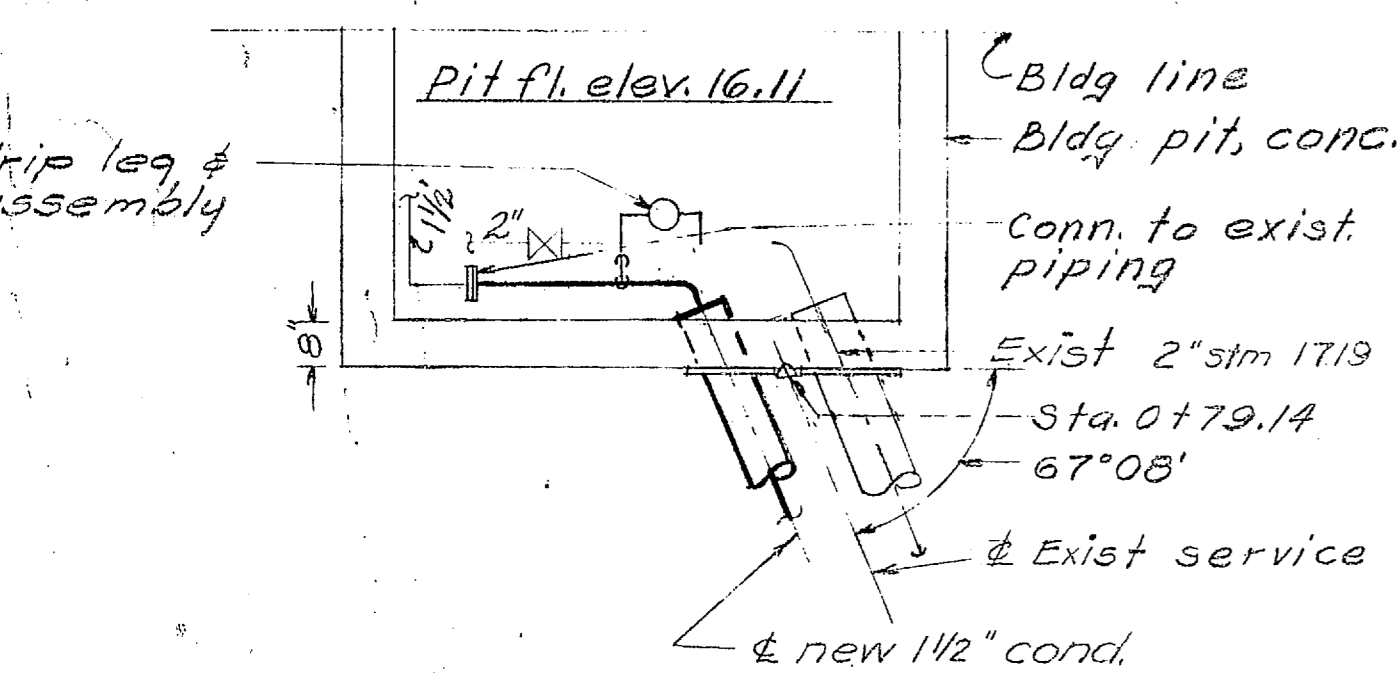 Pit fl. elev. 16.11
Bldg line
Bldg pit, conc.
rip leg &
assembly
1½"
2"
Conn. to exist.
piping
8"
Exist 2" stm 17.19
Sta. 0+79.14
67°08'
℄ Exist service
℄ new 1½" cond.